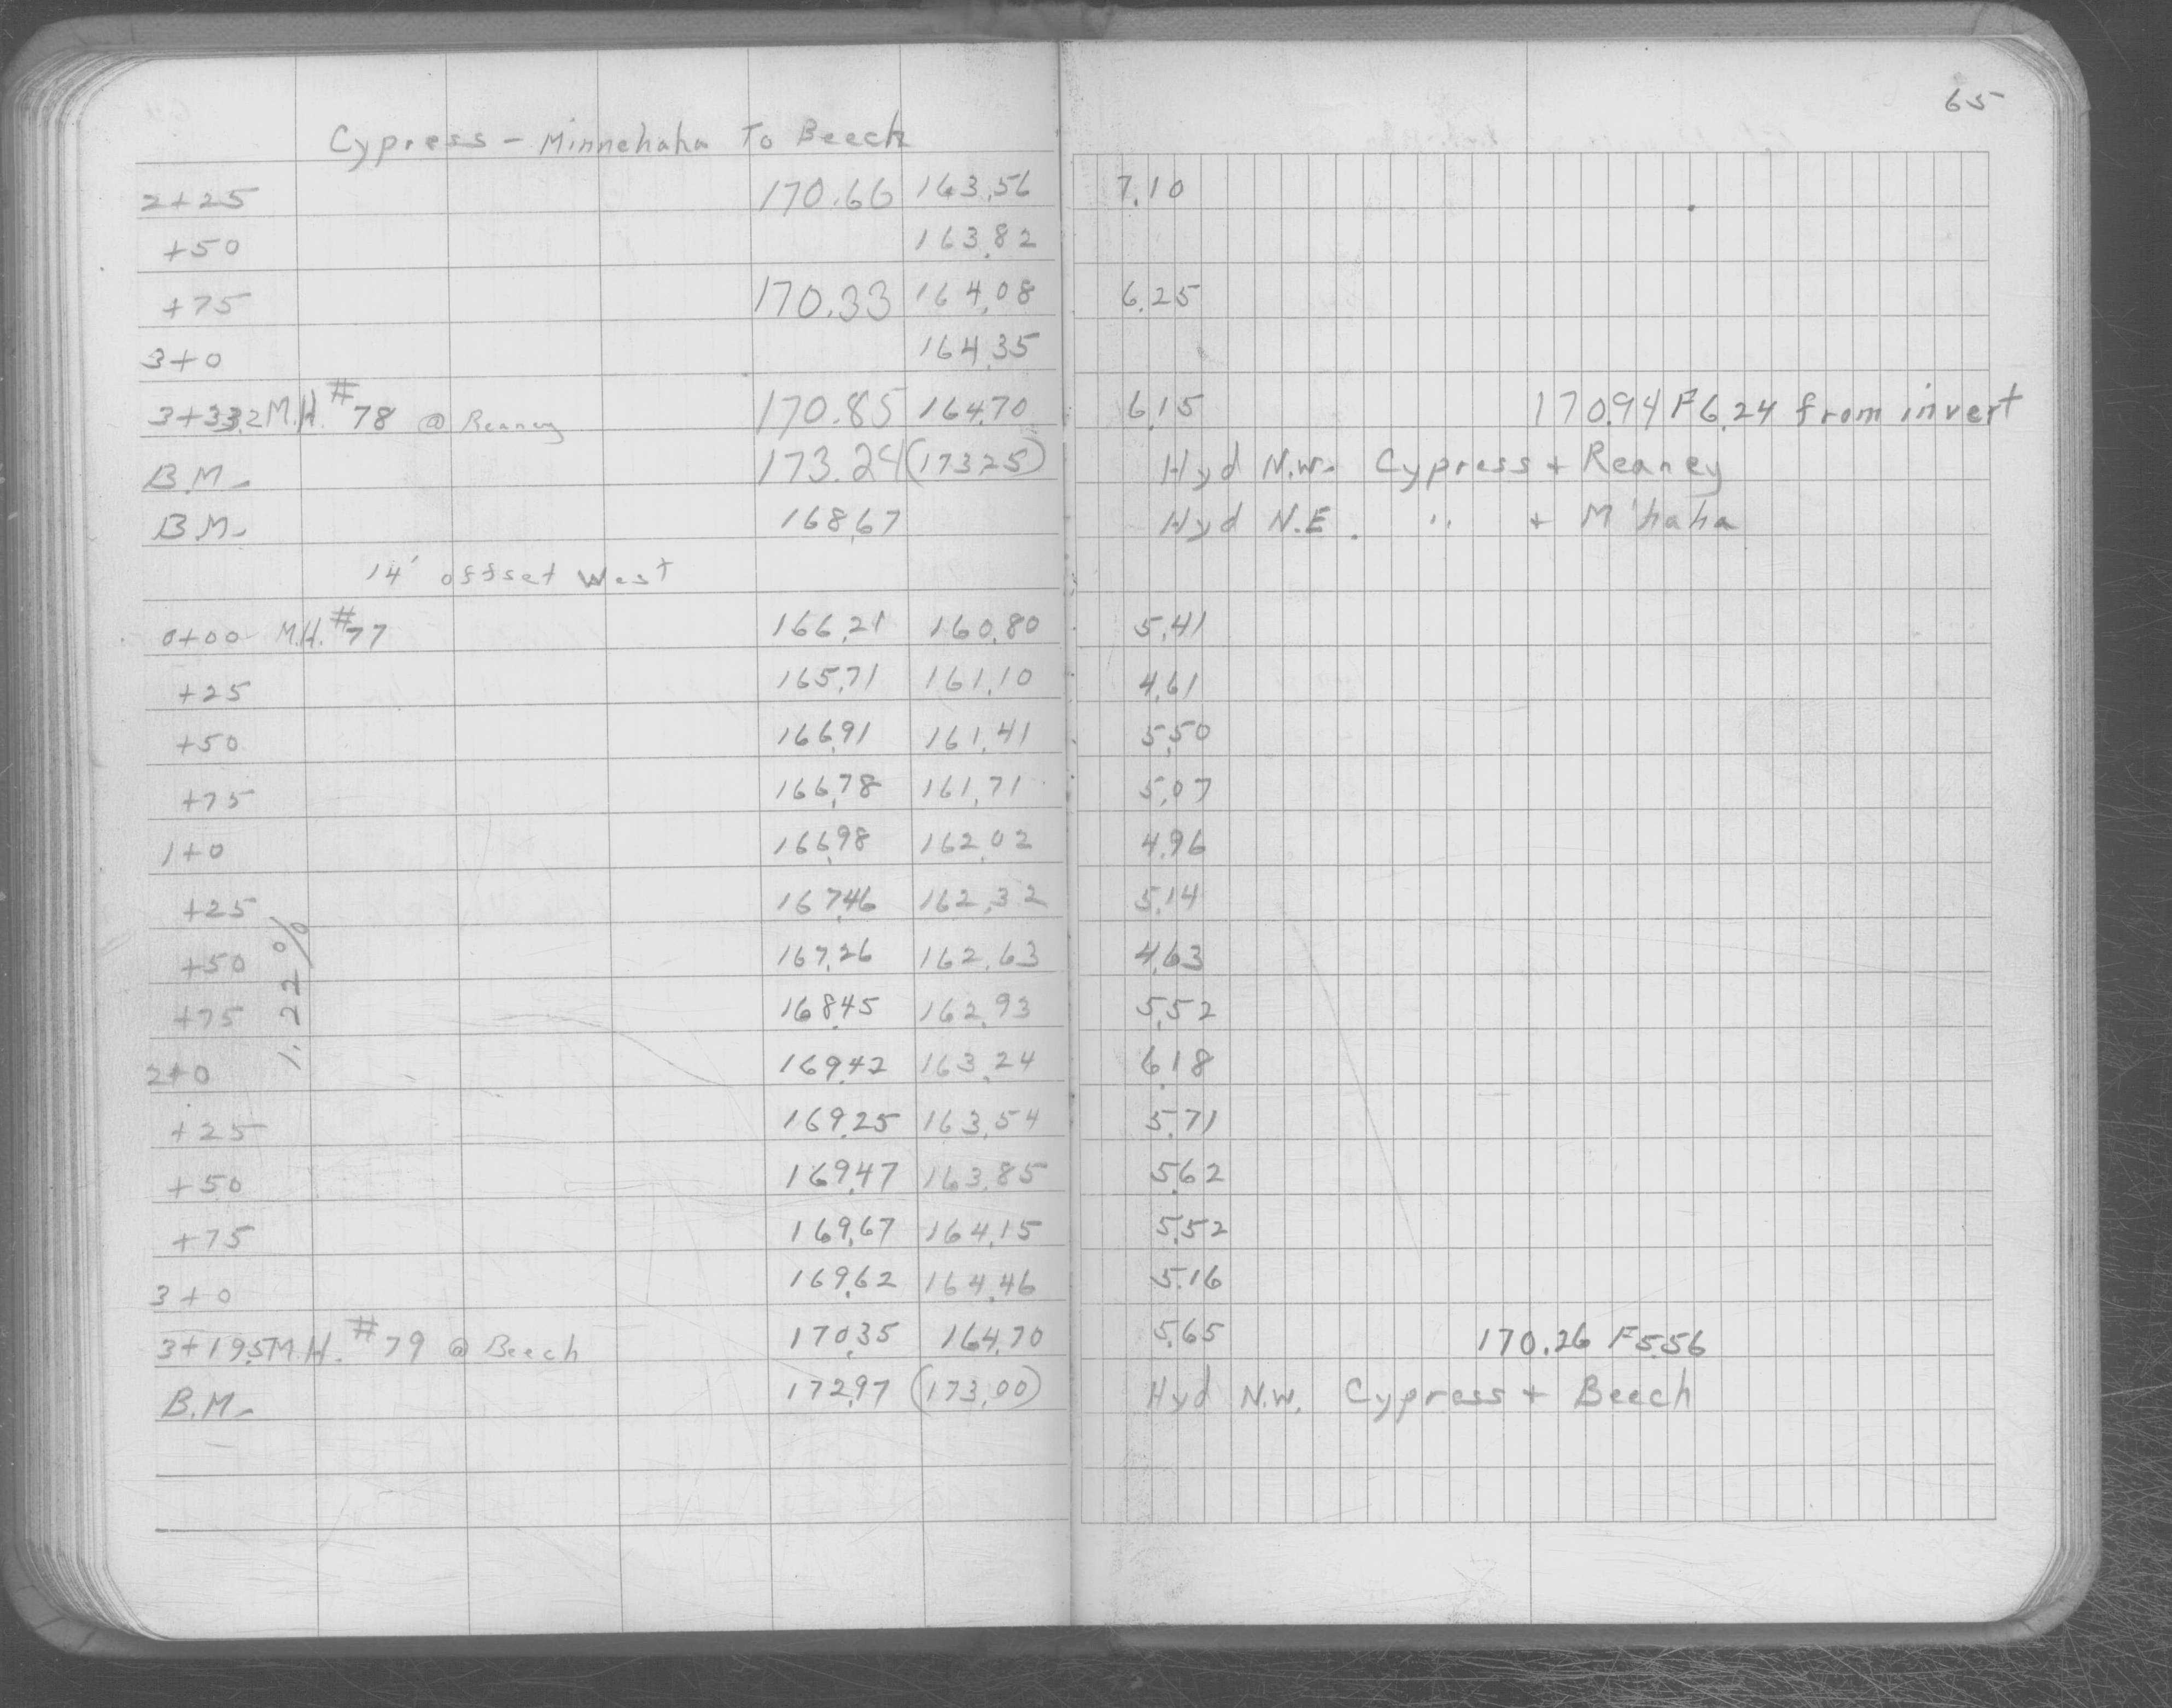 65
Cypress - Minnehaha To Beech
2+25 170.66 163.56 7.10
+50 163.82
+75 170.33 164.08 6.25
3+0 164.35
3+33.2 M.H. #78 @ Reaney 170.85 164.70 6.15 170.94 F 6.24 from invert
B.M. 173.24 (173.25) Hyd N.W. Cypress + Reaney
B.M. 168.67 Hyd N.E. " + M'haha
14' offset West
0+00 M.H. #77 166.21 160.80 5.41
+25 165.71 161.10 4.61
+50 166.91 161.41 5.50
+75 166.78 161.71 5.07
1+0 166.98 162.02 4.96
+25 167.46 162.32 5.14
+50 167.26 162.63 4.63
+75 168.45 162.93 5.52
1.22%
2+0 169.42 163.24 6.18
+25 169.25 163.54 5.71
+50 169.47 163.85 5.62
+75 169.67 164.15 5.52
3+0 169.62 164.46 5.16
3+19.5 M.H. #79 @ Beech 170.35 164.70 5.65 170.26 F 5.56
B.M. 172.97 (173.00) Hyd N.W. Cypress + Beech